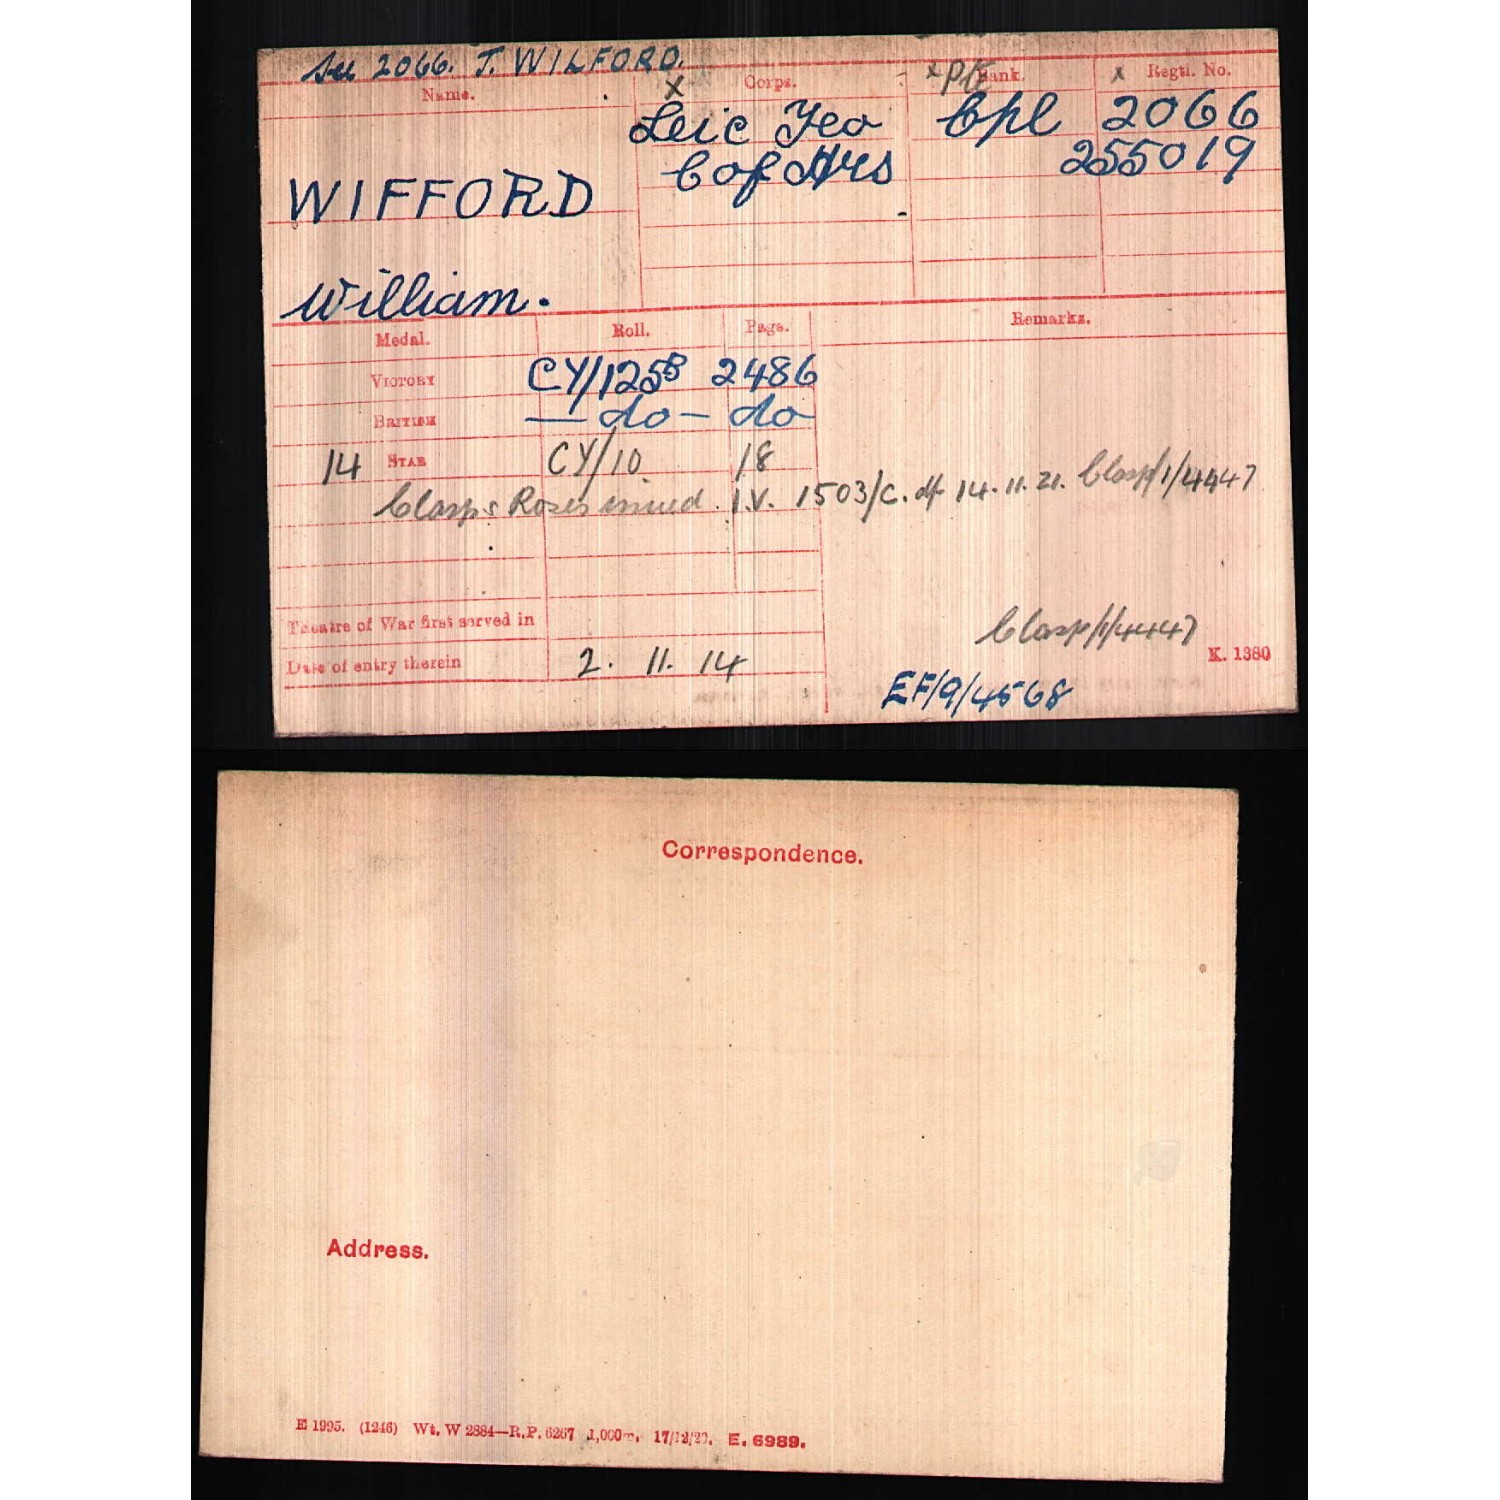 See 2066. T. WILFORD.
Name. x Corps. x Pte Rank. x Regtl. No.
Leic Yeo Cpl 2066
C of Hrs 255019
WIFFORD
William.
Medal. Roll. Page. Remarks.
VICTORY CY/125B 2486
BRITISH — do — do
14 STAR CY/10 18
Clasp & Roses issued. I.V. 1503/C. df 14.11.21. Clasp/1/4447
Theatre of War first served in
Clasp/1/4447
Date of entry therein 2. 11. 14
K. 1380
EF/9/4568
Correspondence.
Address.
E 1995. (1246) Wt. W 2884—R.P. 6267 1,000m. E. 6989.